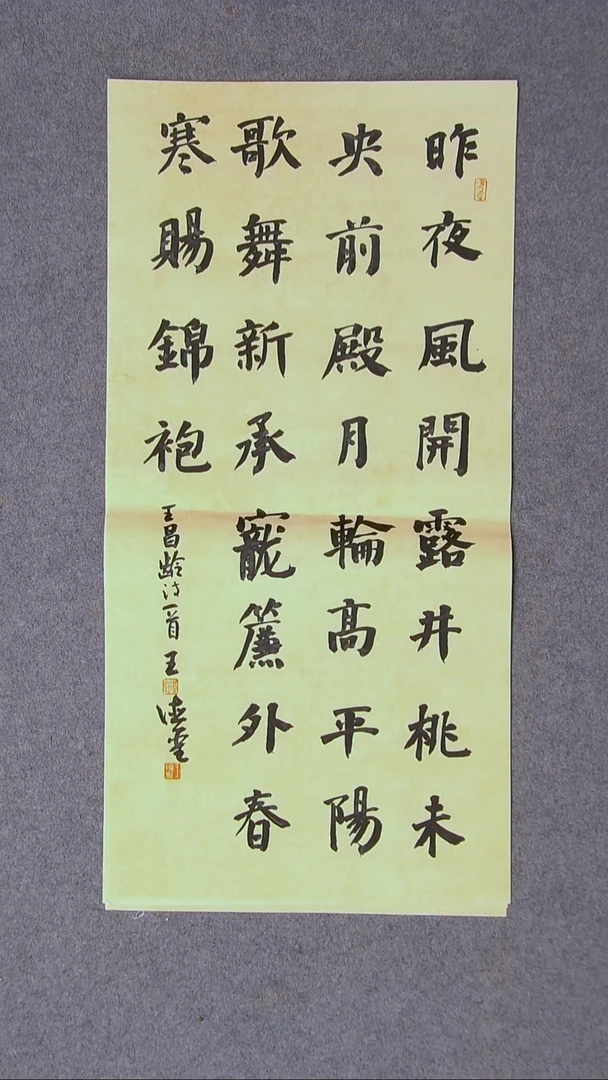 昨夜風開露井桃未
央前殿月輪高平陽
歌舞新承寵簾外春
寒賜錦袍
王昌齡詩一首 王